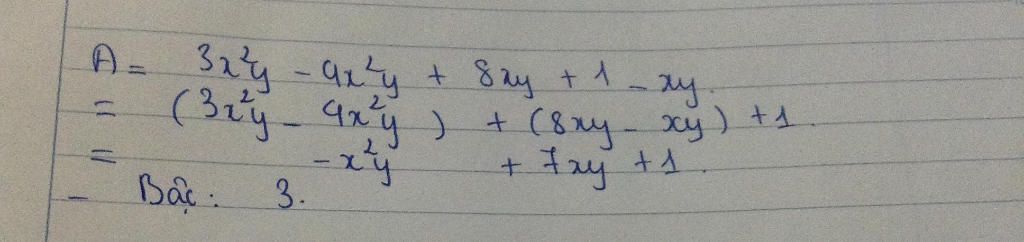 A = 3x²y - 4x²y + 8xy + 1 - xy.
= (3x²y - 4x²y) + (8xy - xy) + 1.
= -x²y + 7xy + 1.
- Bậc: 3.